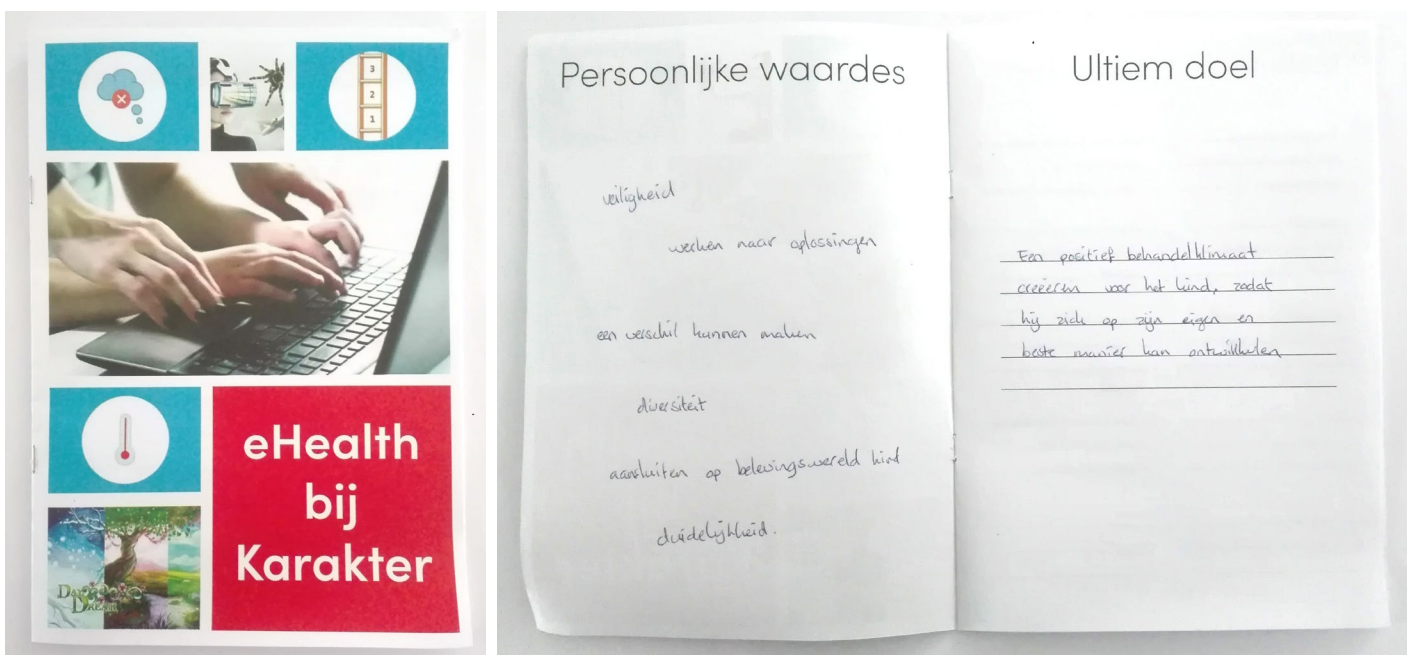 3
2
1
eHealth
bij
Karakter
Persoonlijke waardes
veiligheid
werken naar oplossingen
een verschil kunnen maken
diversiteit
aansluiten op belevingswereld kind
duidelijkheid.
Ultiem doel
Een positief behandelklimaat
creëeren voor het kind, zodat
hij zich op zijn eigen en
beste manier kan ontwikkelen